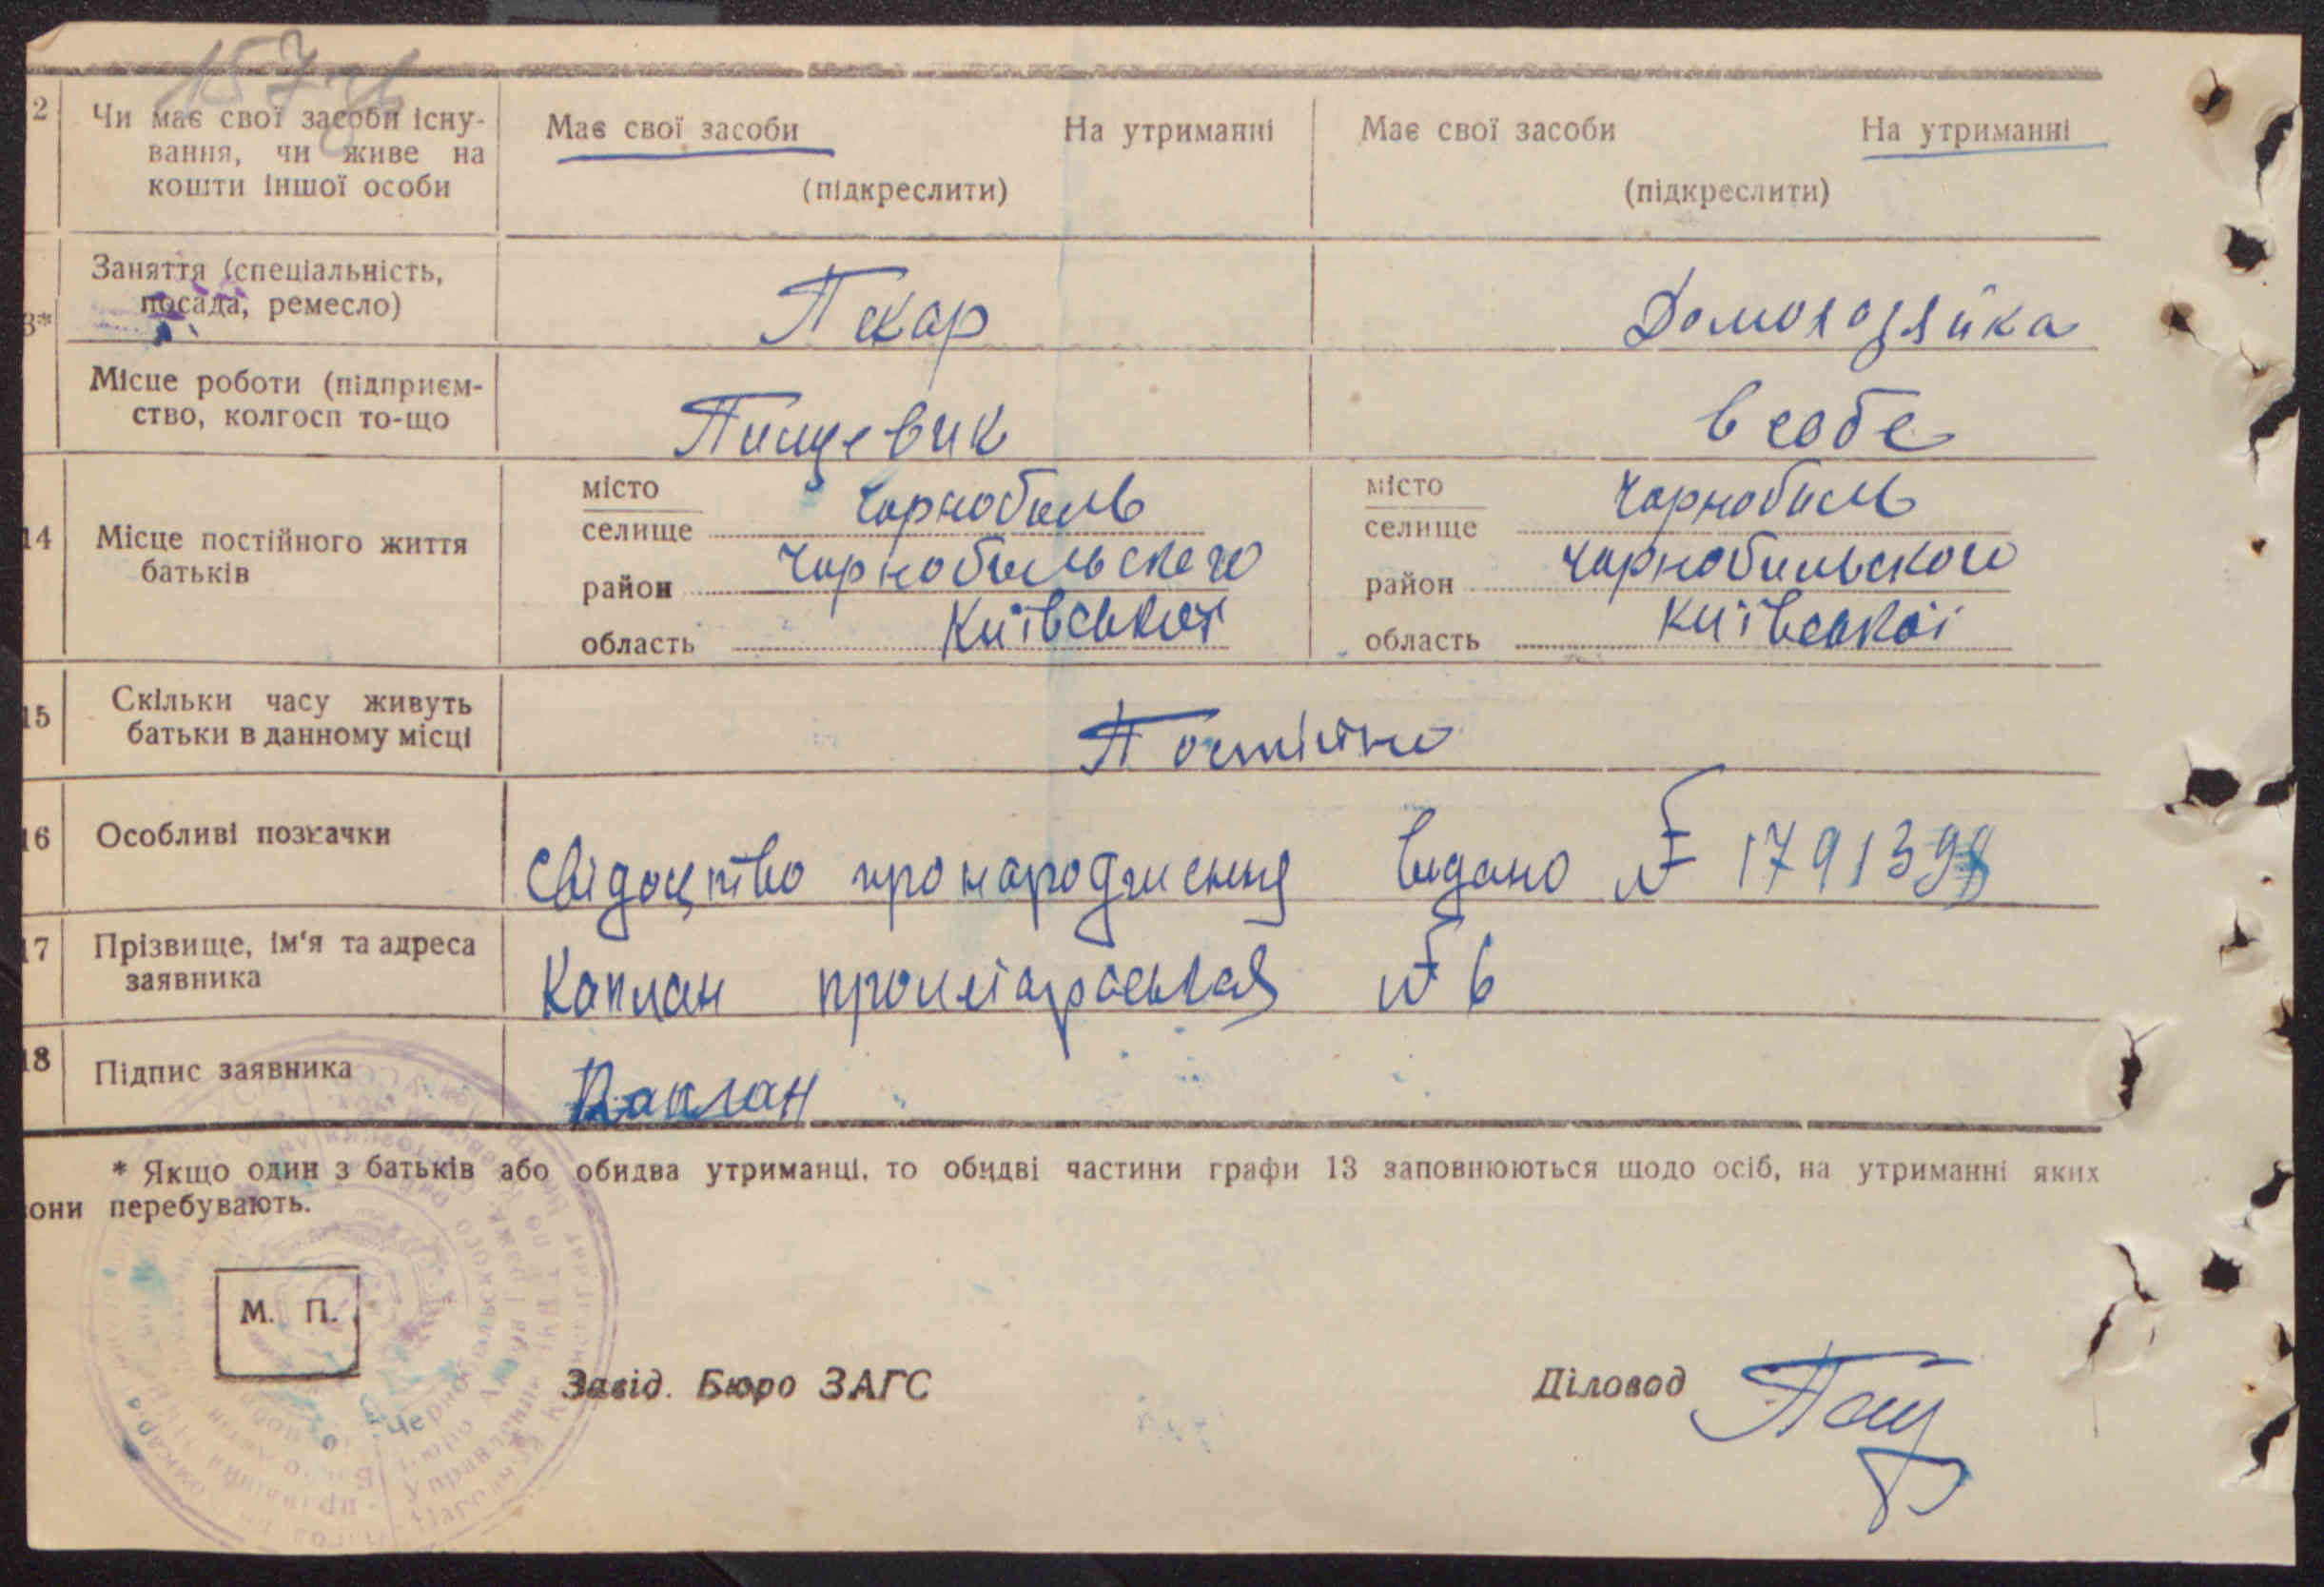 2 Чи має свої засоби існу- Має свої засоби На утриманні Має свої засоби На утриманні
вання, чи живе на
кошти іншої особи (підкреслити) (підкреслити)
3* Заняття (спеціальність,
посада, ремесло) Пекар Домохозяйка
Місце роботи (підприєм-
ство, колгосп то-що Пищевик в себе
14 Місце постійного життя
батьків
місто Чорнобиль місто Чорнобиль
селище селище
район Чорнобильского район Чорнобильского
область Київської область Київської
15 Скільки часу живуть
батьки в данному місці Постійно
16 Особливі позначки Свідоцтво про народження видано №
17 Прізвище, ім'я та адреса
заявника Каплан № 6
18 Підпис заявника Каплан
* Якщо один з батьків або обидва утриманці, то обидві частини графи 13 заповнюються щодо осіб, на утриманні яких
вони перебувають.
М. П.
Завід. Бюро ЗАГС Діловод